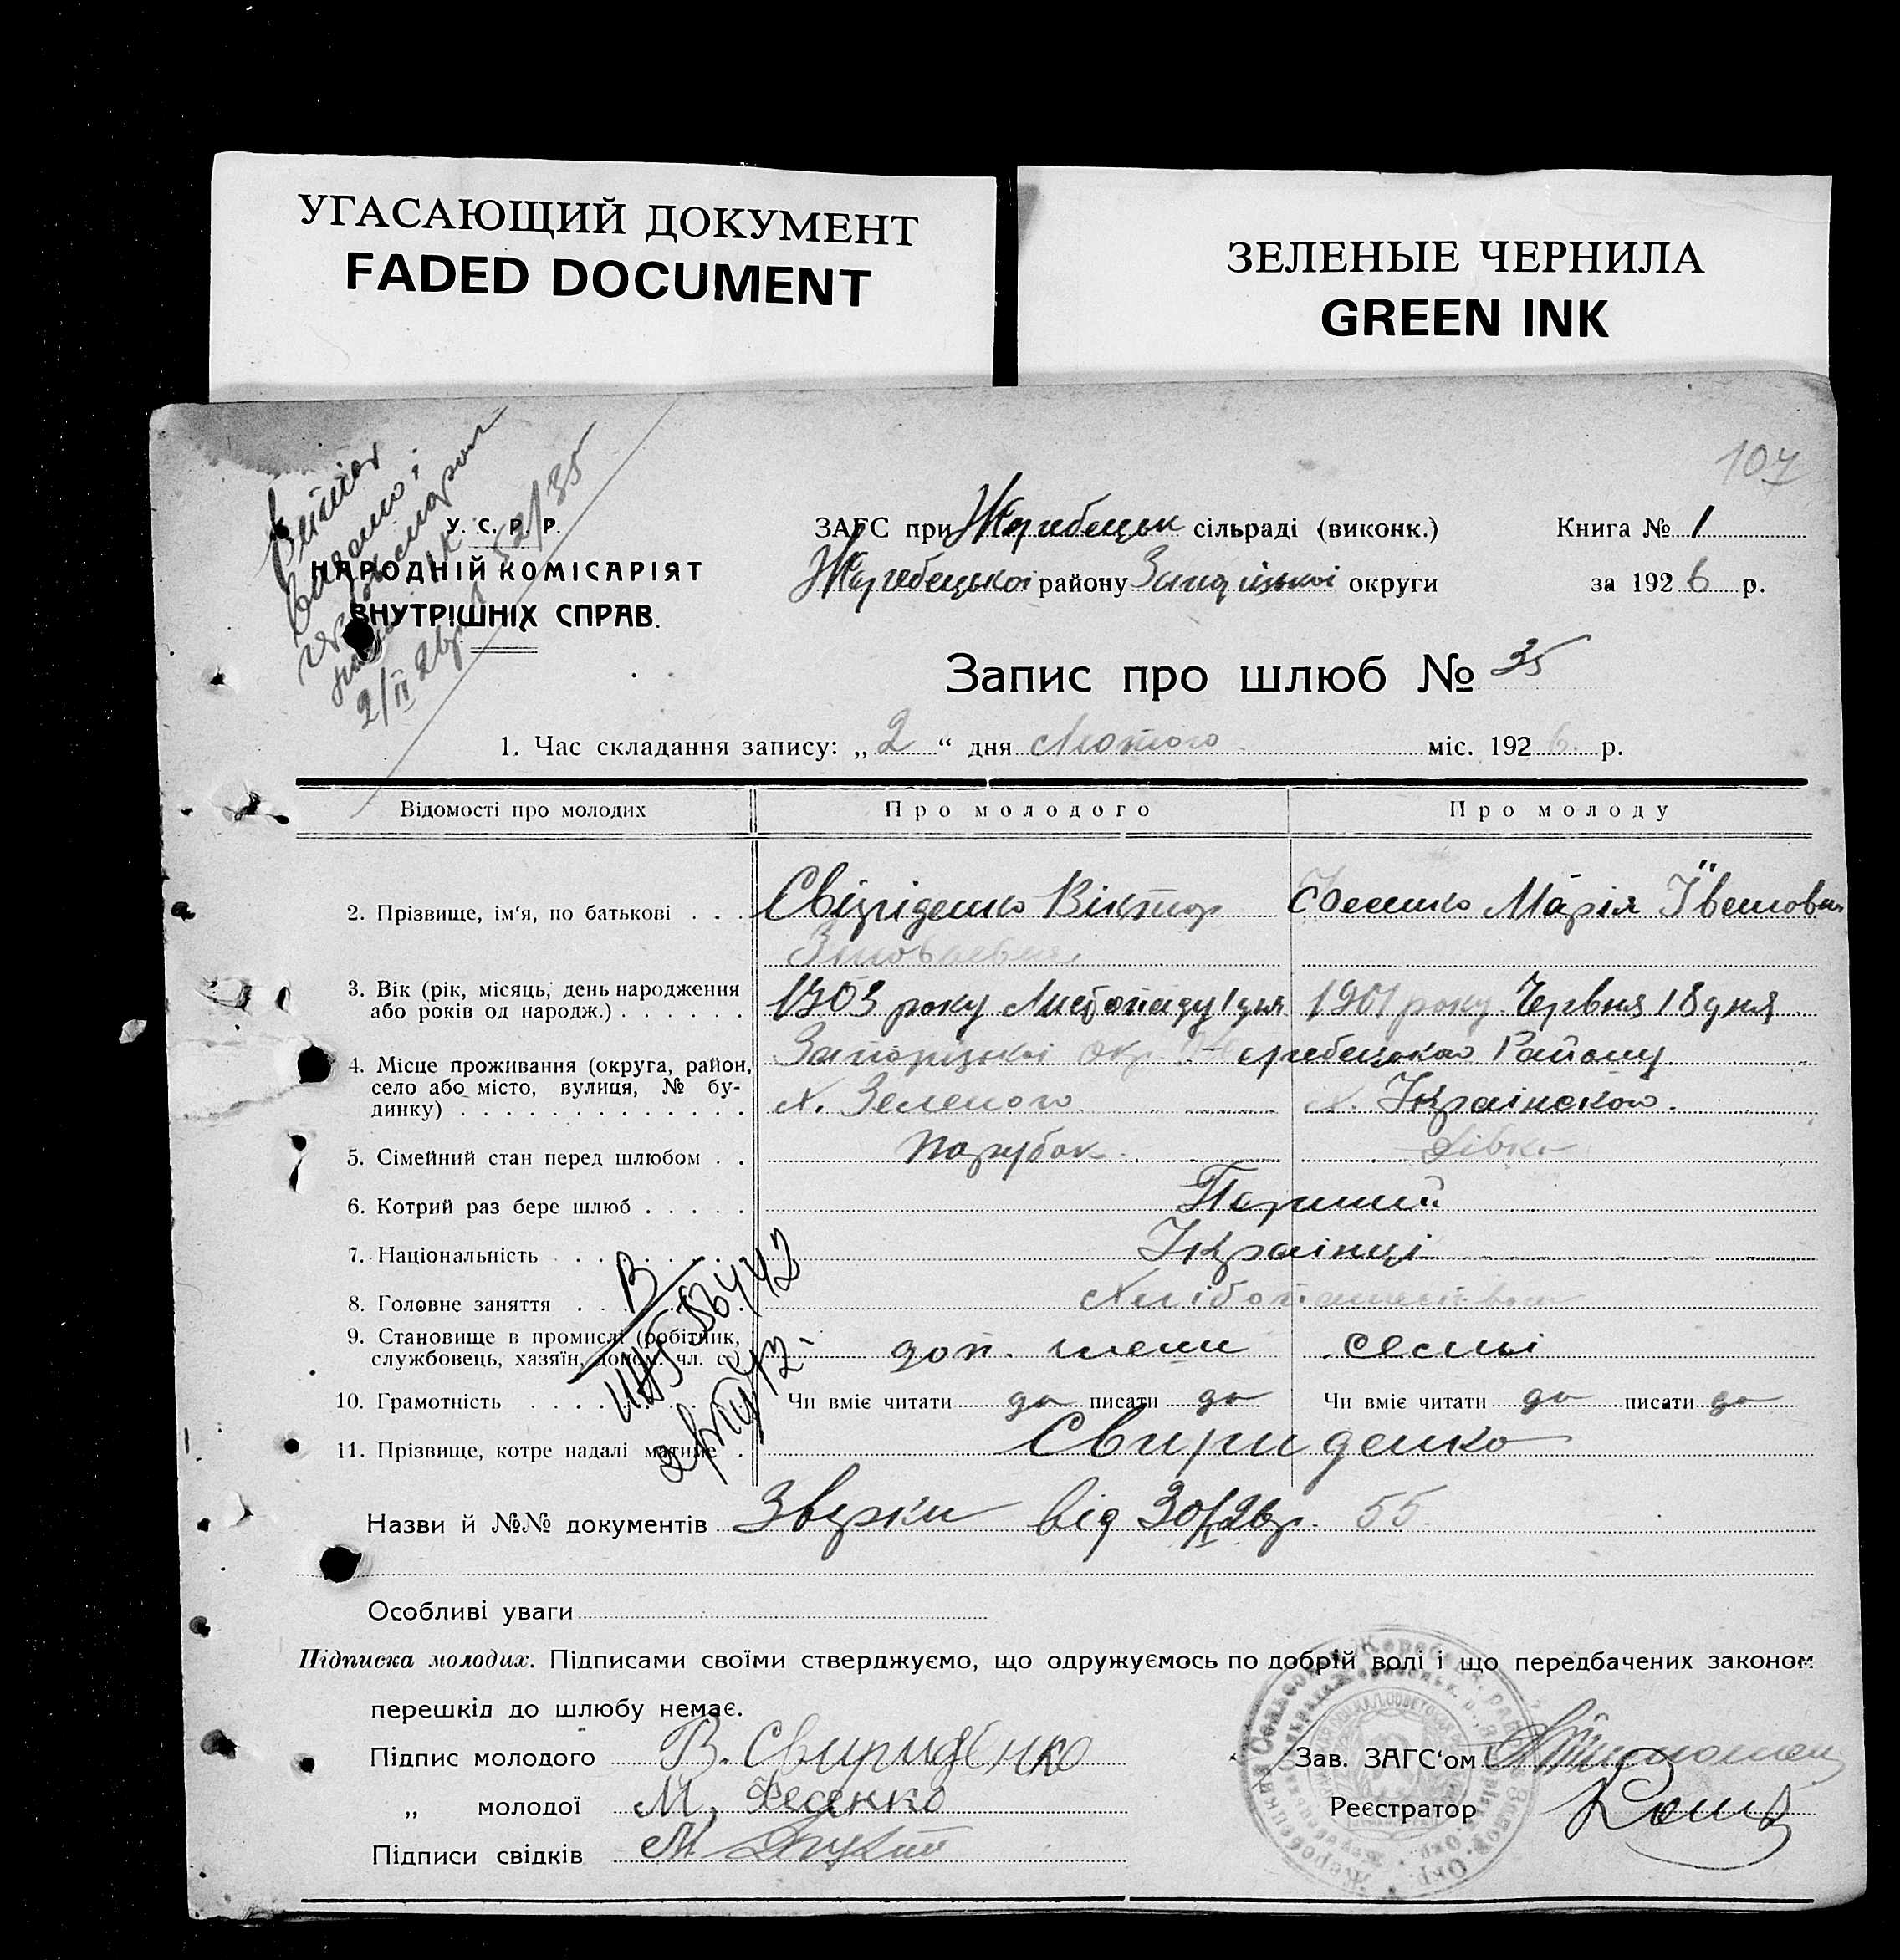 УГАСАЮЩИЙ ДОКУМЕНТ
FADED DOCUMENT
ЗЕЛЕНЫЕ ЧЕРНИЛА
GREEN INK
107
52/35
2/II 26р
У. С. Р. Р.
НАРОДНІЙ КОМІСАРІЯТ
ВНУТРІШНІХ СПРАВ.
ЗАГС при Жеребецьк сільраді (виконк.)
Книга № 1
Жеребецької району Запорізької округи
за 1926 р.
Запис про шлюб № 35
1. Час складання запису: „2“ дня Лютого міс. 1926 р.
Відомості про молодих
Про молодого
Про молоду
2. Прізвище, ім‘я, по батькові . . .
Свіріденко Віктор
Марія
3. Вік (рік, місяць, день народження
або років од народж.) . . . . . .
1903 року Листопаду 1 дня
1901 року Червня 18 дня
4. Місце проживання (округа, район,
село або місто, вулиця, № бу-
динку) . . . . . . . . . . . . .
Запорізької окр. Жеребецького Району
х. Зеленого
х. Українского.
5. Сімейний стан перед шлюбом . .
Парубок
Дівка
6. Котрий раз бере шлюб . . . . .
Перший
7. Національність . . . . . . . .
Українці
8. Головне заняття . . . . . . . .
9. Становище в промислі (робітник,
службовець, хазяїн, допом. чл. с.)
доп. члени семьі
10. Грамотність . . . . . . . . .
Чи вміє читати да писати да
Чи вміє читати да писати да
11. Прізвище, котре надалі матиме .
Свириденко
Назви й №№ документів
від 30/I 26р. 55.
Особливі уваги
Підписка молодих. Підписами своїми стверджуємо, що одружуємось по добрій волі і що передбачених законом
перешкід до шлюбу немає.
Підпис молодого В. Свириденко
Зав. ЗАГС‘ом
„ молодої М. Феденко
Реєстратор
Підписи свідків М.